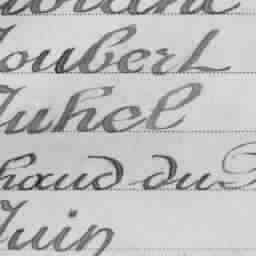 Joubert
Juhel
haud du
Juin